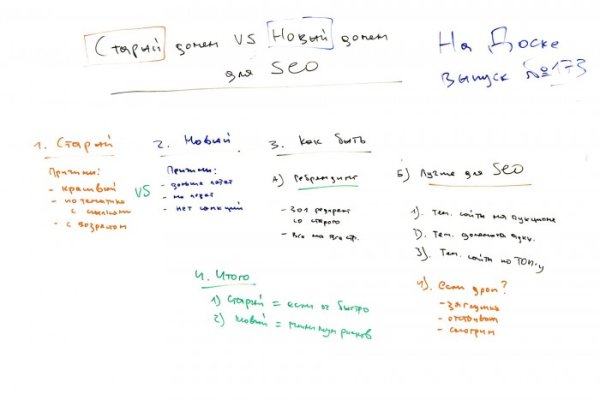 Старый домен VS Новый домен
для SEO
На Доске
выпуск №173
1. Старый
Причины:
- красивый
- по тематике
с ссылками
- с возрастом
VS
2. Новый
Причины:
- дольше
- не
- нет санкций
3. Как быть
А) Ребрендинг
- 301 редирект
со старого
- Все на все стр.
Б) Лучше для SEO
1). Тем. сайты на аукционе
2). Тем. домены аукц.
3). Тем. сайты по ТОП-у
4). если дроп?
- загружаем
- отстаиваем
- смотрим
4. Итого
1) Старый = если оч быстро
2) Новый = минимум рисков